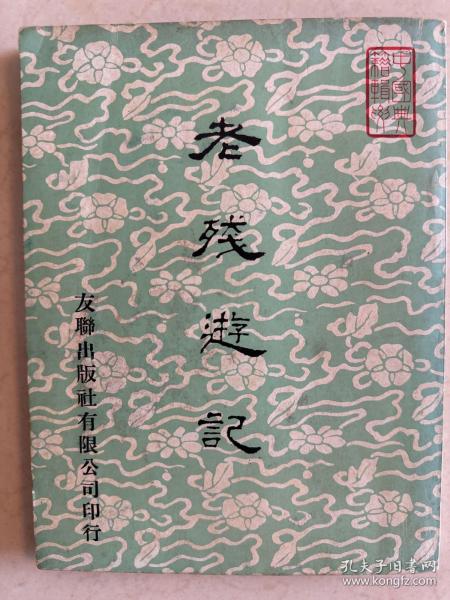 中國典
籍輯要
老殘遊記
友聯出版社有限公司印行
孔夫子旧书网
www.kongfz.com